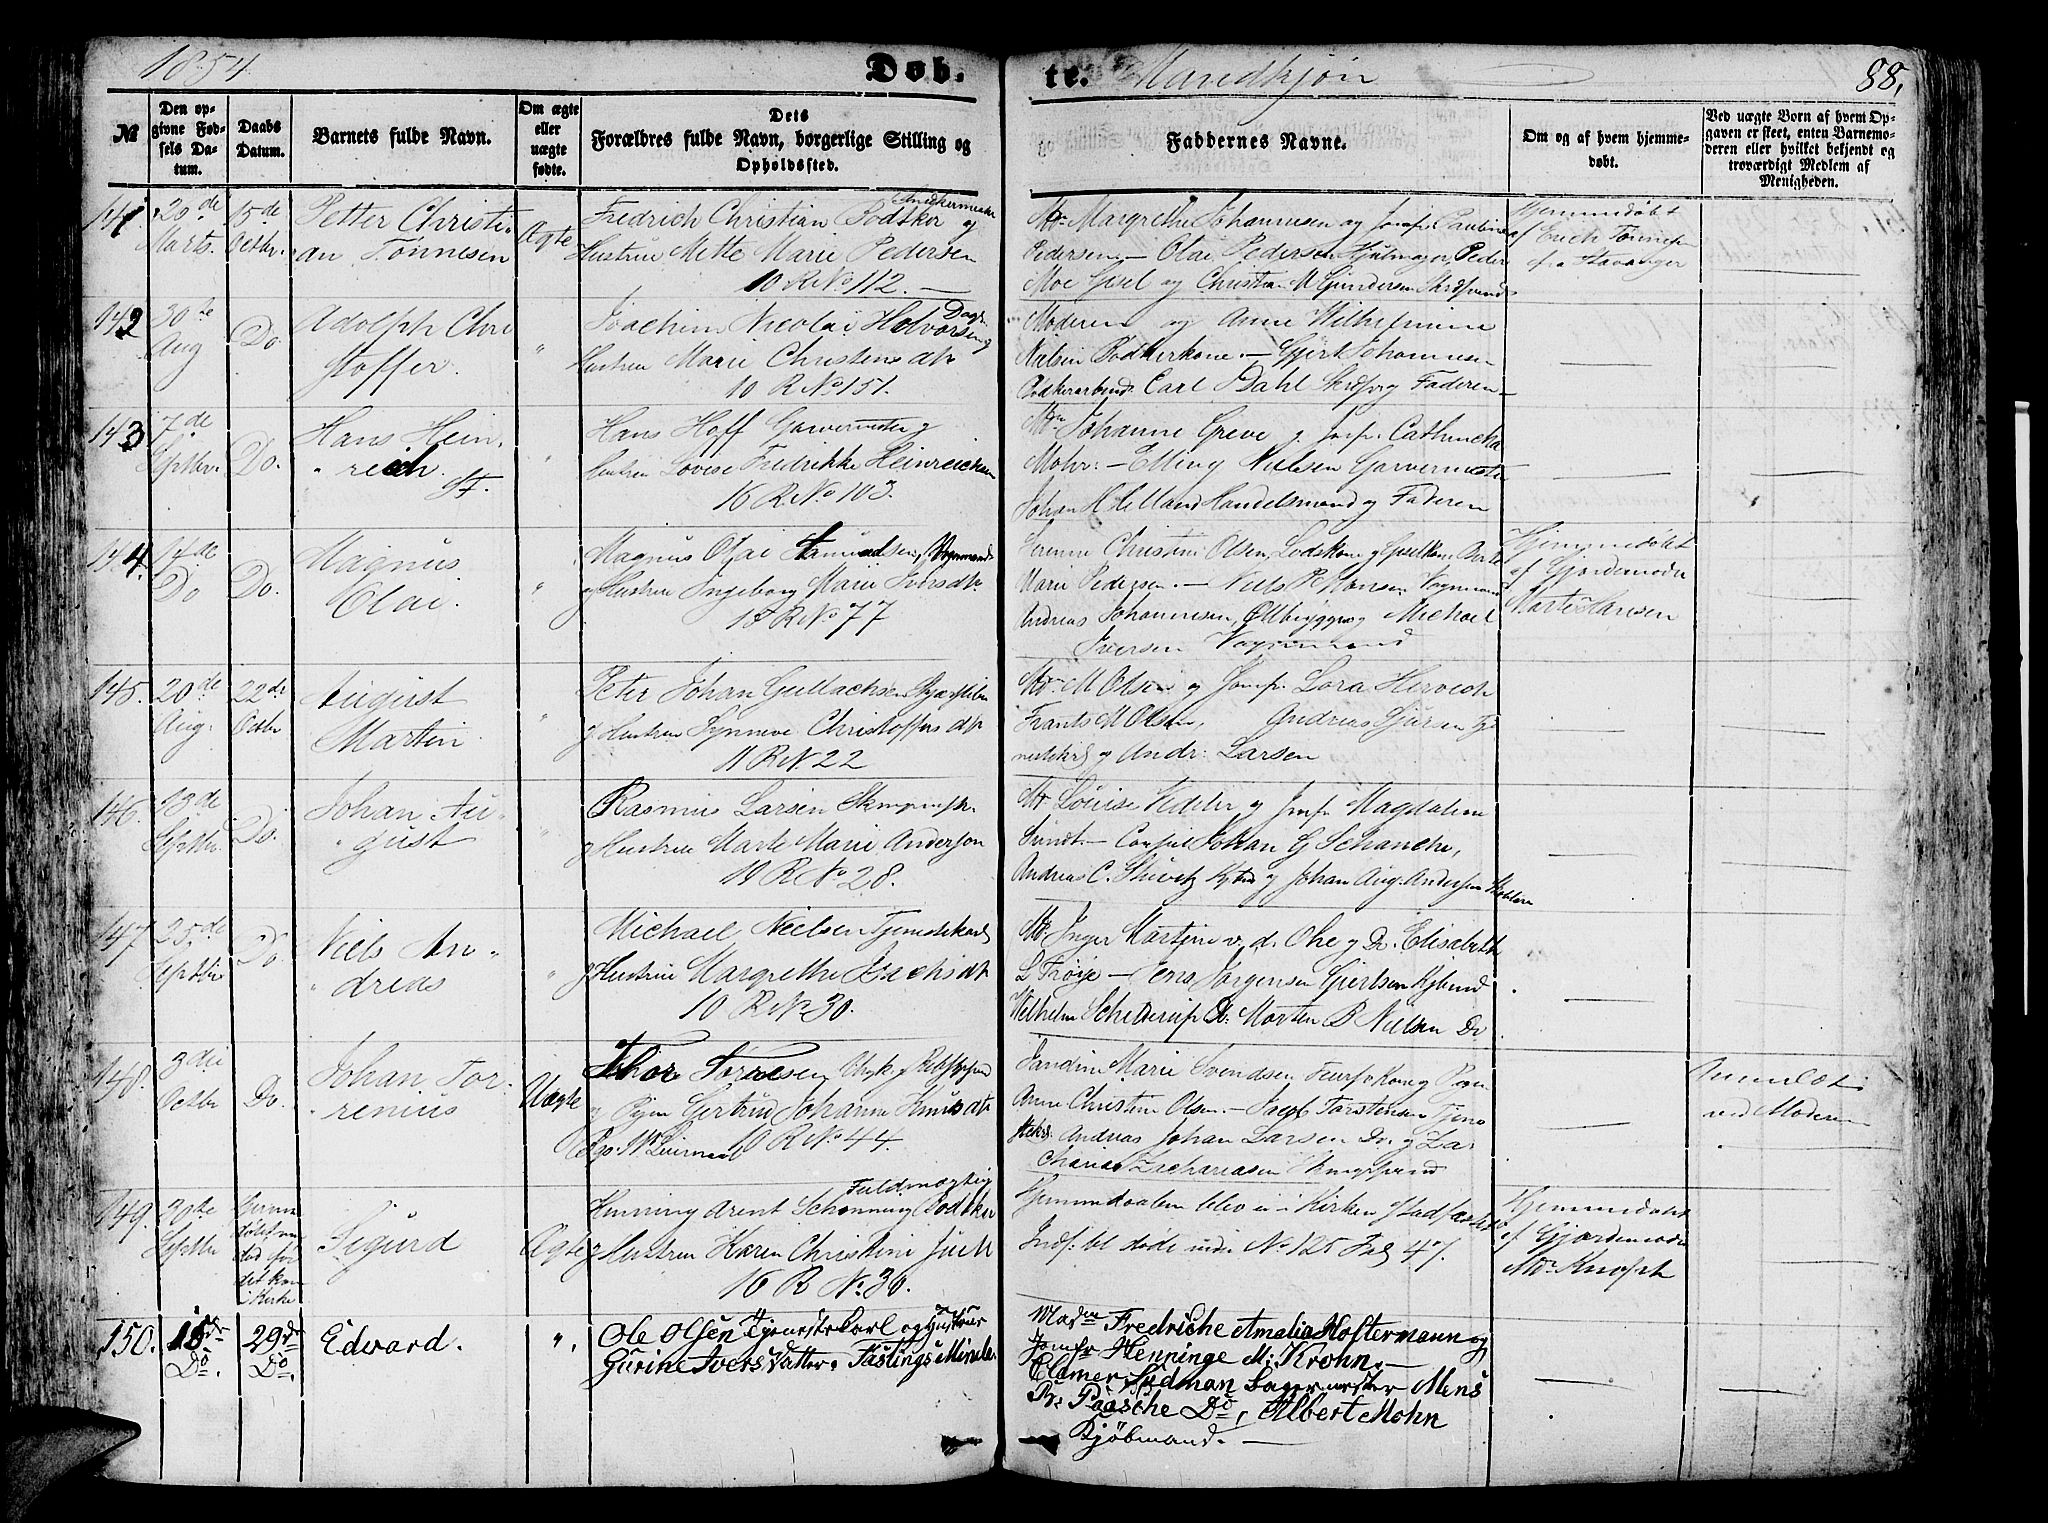 1854
Døb-
te. Mandkjøn
88.
№
Den op-
givne Fød-
sels Da-
tum.
Daabs
Datum.
Barnets fulde Navn.
Om ægte
eller
uægte
fødte.
Dets
Forældres fulde Navn, borgerlige Stilling og
Opholdssted.
Faddernes Navne.
Om og af hvem hjemme-
døbt.
Ved uægte Born af hvem Op-
gaven er skeet, enten Barnemo-
deren eller hvilket bekjendt og
troværdigt Medlem af
Menigheden.
141
20de
Marts.
15de
Octbr.
Petter Christi-
an Tönnesen
Ægte
Fredrich Christian Bödtker og
Hustrue Mette Marie Pedersen
10 R No 112.
Margrethe Johannesen og Jomfr. Pauline
Pedersen — Olai Pedersen Hjulmager, Peder
Moe Gisel og Christian M Gundersen
Hjemmedøbt
af Erich Tönnesen
fra Stavanger
142
30te
Aug
Do.
Adolph Chri
stoffer.
"
Joachim Nicolai Holvorsen Dagk. og
Hustrue Marie Christensdtr
10 R No 151.
Moderen og Anne Wilhelmine
Nielsen Bödkerkone. — Gjert Johannesen
Carl Dahl og Faderen
143
7de
Septbr.
Do.
Hans Hein-
"rich. St.
"
Hans Hoff Garvermester og
Hustrue Lovise Fredrikke Heinreichsen
16 R No 103.
Johanne Greve og Jomfr. Cathincka
Mohr: — Elling Nielsen Garvermester
Johan H Helland Handelsmand og Faderen
144.
14de
Do
Do.
Magnus
Olai.
"
Magnus Olai Samuelsen, Vognmand
og Hustrue Ingeborg Marie Iversdtr
18 R No 77
Serine Christine Olsen, Lodskone og Berte
Marie Pedersen. — Niels P Hansen Vognmand
Andreas Johannesen, Ølbrygger og Michael
Iversen Vognmand
Hjemmedøbt
af Gjordemoder
Marte Hansen
145.
20de
Aug.
22de
Octbr
August
Martin
"
Peter Johan Gullachsen
og Hustrue Synneve Christoffersdtr
11 R No 22
M Olsen og Jomfr. Lora Hervech
Frants M Olsen, Andreas Sjursen Tje
nestekarl og Andr: Larsen
146.
13de
Septbr.
Do.
Johan Au-
"gust
"
Rasmus Larsen
og Hustrue Marte Marie Anderson
11 R No 28.
Louise Vedeler og Jomfr Magdalene
Sundt. — Consul Johan G Schanche,
Andreas C. og Johan Aug. Andersen
147
25de
Septbr
Do.
Niels An-
"dreas
"
Michael Nielsen Tjenestekarl
og Hustrue Margrethe Isachsdtr
10 R No 30.
Inger Martine v. d. Ohe og Do. Elisabeth
L Frøie — Jens Jørgensen Gjertsen Kjbmd
Wilhelm Schitterup Do. Morten B Nielsen Do
148.
3die
Octbr
Do.
Johan Tor-
"renius
Uægte
Thor
og Pigen Gertrud Johanne Knudsdtr
10 R No 44.
Sandrine Marie Svendsen og Pigen
Anne Christine Olsen — Jacob Torstensen Tjene
stekrl. Andreas Johan Larsen Do. og Za-
charias Zachariasen
Anmeldt
ved Moderen
149.
30te
Septbr
Hjemme
døbt
død før
det kom
i Kirke
Sigurd
Ægte
Fuldmægtig
Henning Arent Schønning Bödtker
og Hustrue Karen Christine Juell
16 R No 30.
Hjemmedaaben blev ei i Kirken stadfæstet
Indf. bl døde under No 125 Fol 47.
Hjemmedøbt
af Gjordemoder
Knoph
150.
15de
Do.
29de
Do.
Edvard.
".
Ole Olsen Tjenestekarl og Hustrue
Gurine Ivers Datter.
Madm Fredriche Amalia Hoftermann og
Jomfr Henninge M: Krohn. —
Sudman Lagermester Mens
Pr. Paasche Do, Albert Mohn
Kjöbmand. —